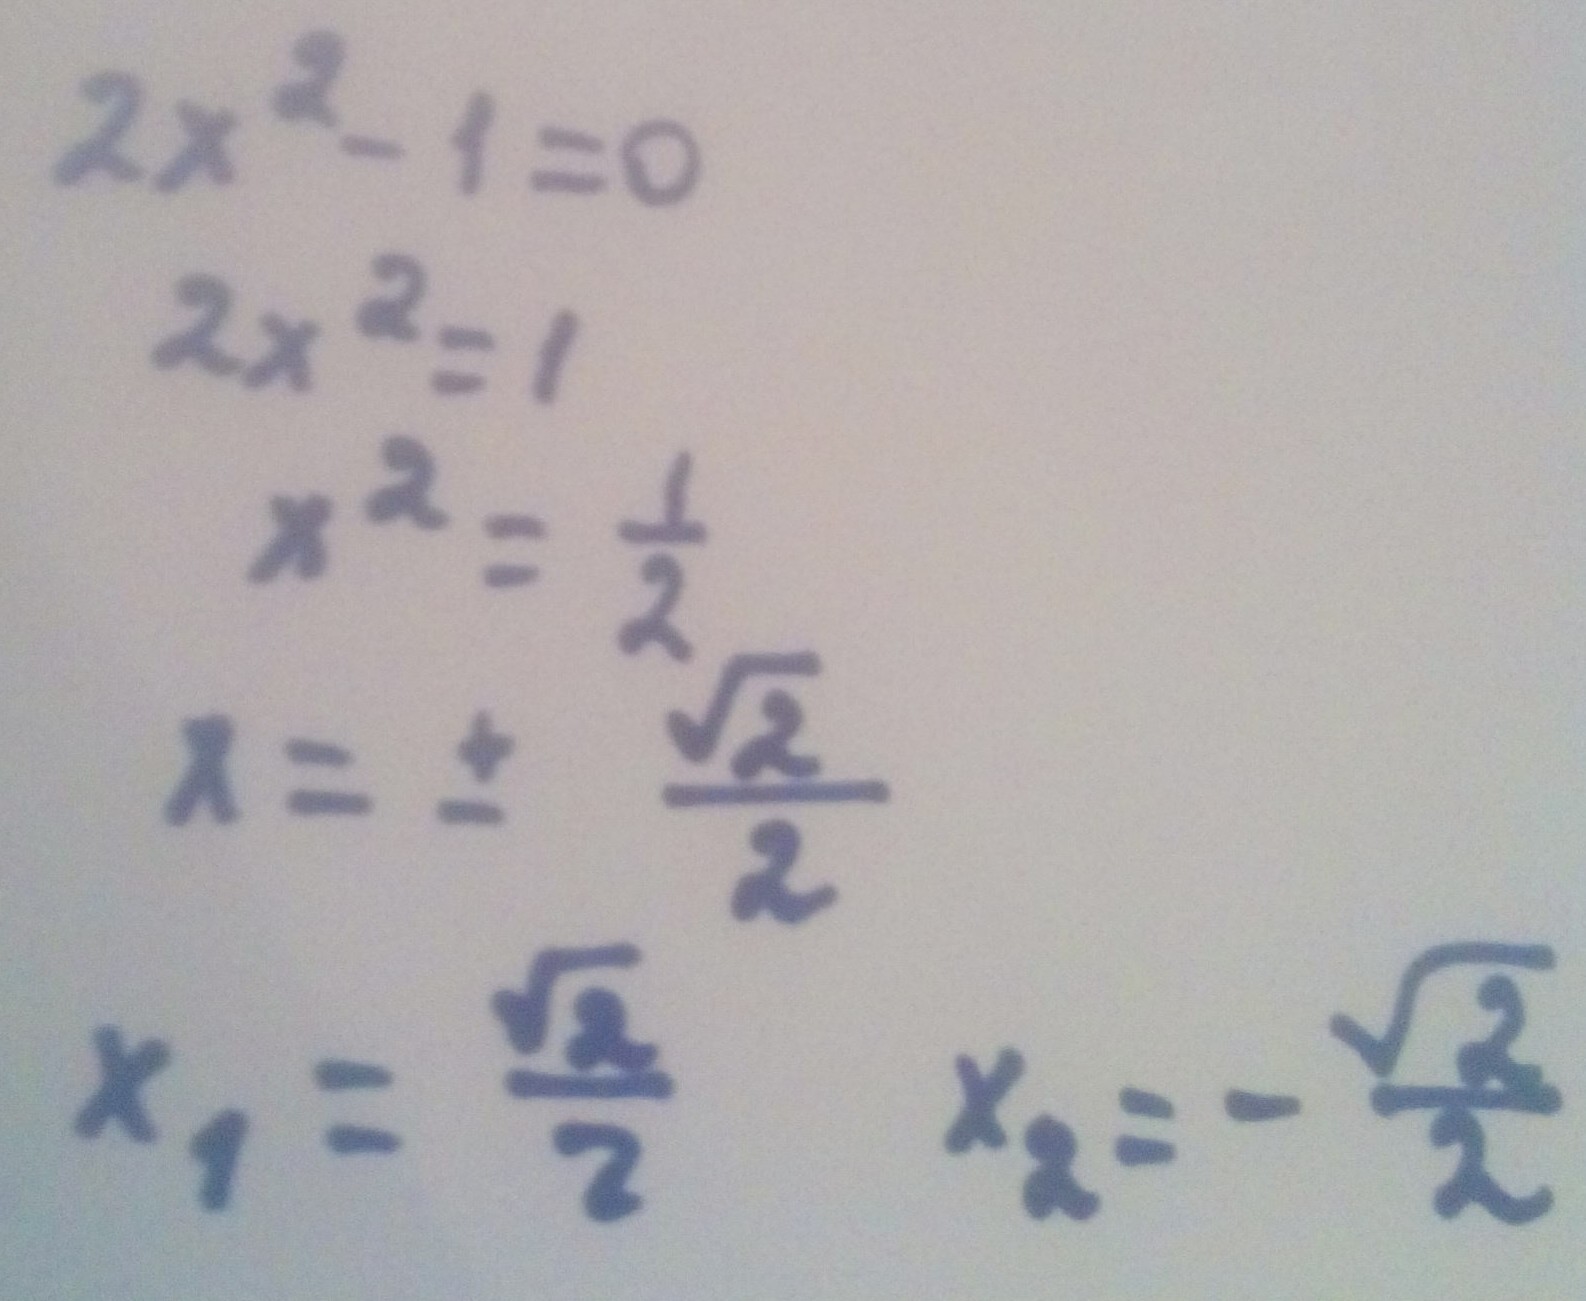 2x² - 1 = 0
2x² = 1
x² = 1/2
x = ± √2/2
x₁ = √2/2 x₂ = - √2/2